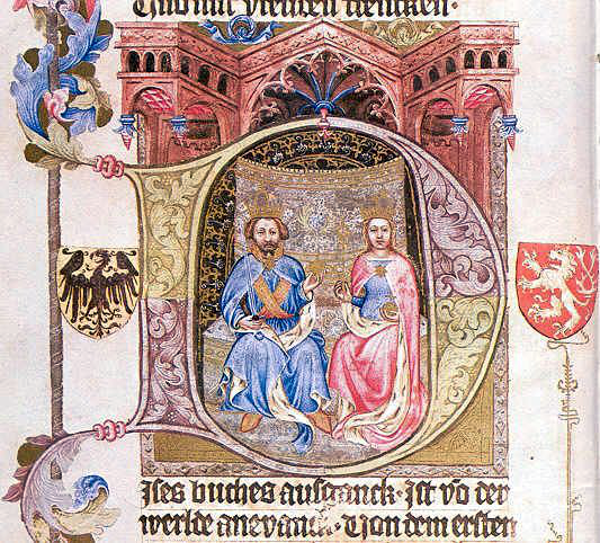 vremden
DIses buches aufganck · Ist vo der
werlde anevanck · Von dem ersten